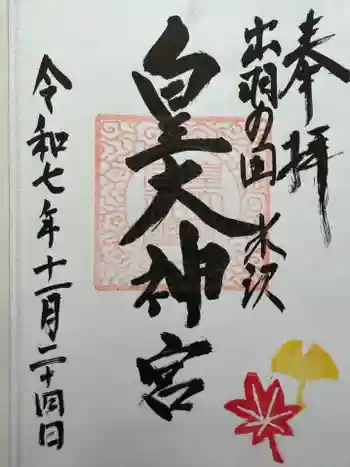 奉拝
出羽の国 水沢
皇大神宮
令和七年十一月二十四日